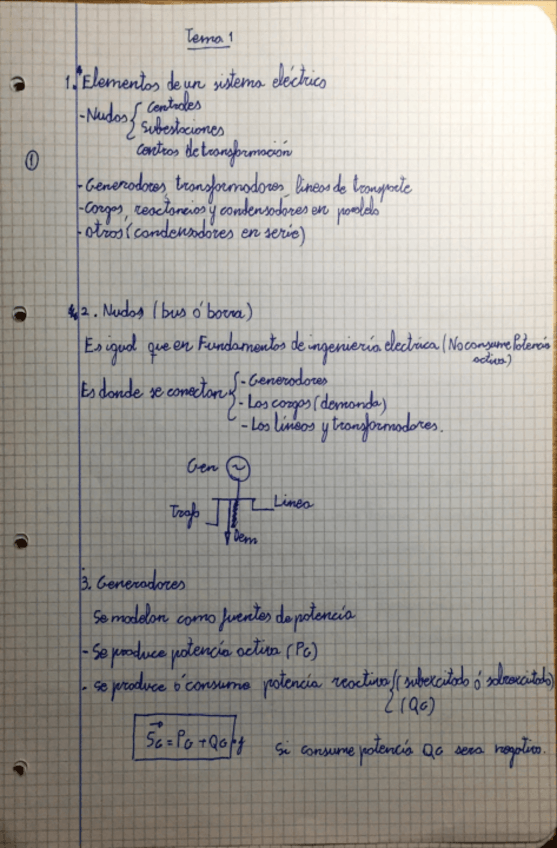 Tema 1
1. Elementos de un sistema eléctrico
- Nudos { Centrales
Subestaciones
Centros de transformación
①
- Generadores, transformadores, líneas de transporte
- Cargas, reactancias y condensadores en paralelo
- Otros (condensadores en serie)
2. Nudos (bus ó barra)
Es igual que en Fundamentos de ingeniería electrica (No consume Potencia
activa)
Es donde se conectan { - Generadores
- Las cargas (demanda)
- Las líneas y transformadores.
Gen
Trafo Linea
Dem
3. Generadores
Se modelan como fuentes de potencia
- Se produce potencia activa (PG)
- Se produce ó consume potencia reactiva { (subexcitado ó sobreexcitado)
(QG)
SG = PG + QG · j Si consume potencia QG sera negativa.